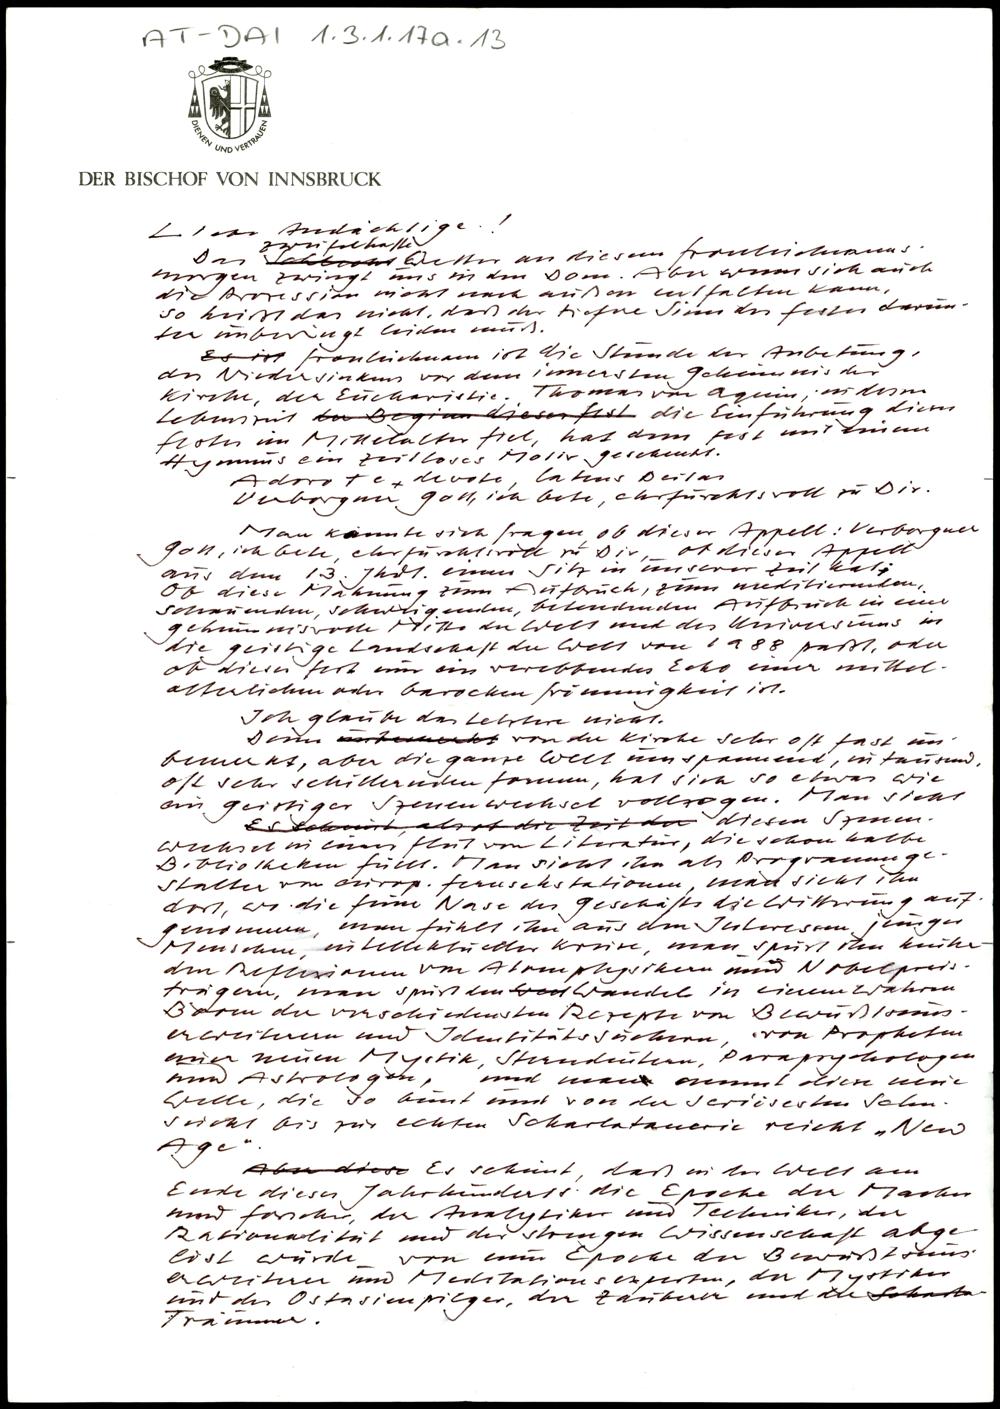 AT-DAI 1.3.1.17a.13
DIENEN UND VERTRAUEN
DER BISCHOF VON INNSBRUCK
Liebe Andächtige!
zweifelhafte
Das Schlechte Wetter an diesem Fronleichnams-
morgen zwingt uns in den Dom. Aber wenn sich auch
die Prozession nicht nach außen entfalten kann,
so heißt das nicht, daß der tiefere Sinn des Festes darun-
ter unbedingt leiden muß.
Es ist Fronleichnam ist die Stunde der Anbetung,
des Niedersinkens vor dem innersten Geheimnis der
Kirche, der Eucharistie. Thomas von Aquin, in dessen
Lebenszeit der Beginn dieses Fest die Einführung dieses
Festes im Mittelalter fiel, hat dem Fest mit einem
Hymnus ein zeitloses Motiv geschenkt.
Adoro te devote, latens Deitas
Verborgner Gott, ich bete, ehrfürchtsvoll zu Dir.
Man könnte sich fragen, ob dieser Appell: Verborgner
Gott, ich bete, ehrfürchtsvoll zu Dir, ob dieser Appell
aus dem 13. Jhdt. einen Sitz in unserer Zeit hat;
Ob diese Mahnung zum Aufbruch, zum meditierenden,
schauenden, schweigenden, betendenden Aufbruch in eine
geheimnisvolle Mitte der Welt und des Universums in
die geistige Landschaft der Welt von 1988 paßt, oder
ob dieses Fest nur ein verebbendes Echo einer mittel-
alterlichen oder barocken Frömmigkeit ist.
Ich glaube das Letztere nicht.
Denn unbemerkt von der Kirche sehr oft fast un-
bemerkt, aber die ganze Welt umspannend, in tausend,
oft sehr schillernden Formen, hat sich so etwas wie
ein geistiger Szenenwechsel vollzogen. Man sieht
Es scheint, als ob die Zeit der diesen Szenen-
wechsel in einer Flut von Literatur, die schon halbe
Bibliotheken füllt. Man sieht ihn als Programmge-
stalter von europ. Fernsehstationen, man sieht ihn
dort, wo die feine Nase des Geschäfts die Witterung auf-
genommen, man fühlt ihn aus dem Interesse junger
Menschen, intellektueller Kreise, man spürt ihn hinter
den Reflexionen von Atomphysikern und Nobelpreis-
trägern, man spürt den Wandel in einem wahren
Boom der verschiedensten Rezepte von Bewußtseins-
erweiterern und Identitätssuchern, von Propheten
einer neuen Mystik, Sterndeutern, Parapsychologen
und Astrologen, und man nennt diese neue
Welle, die so bunt und von der seriösesten Sehn-
sucht bis zur echten Scharlatanerie reicht „New
Age".
Aber diese Es scheint, daß in der Welt am
Ende dieses Jahrhunderts die Epoche der Macher
und Forscher, der Analytiker und Techniker, der
Rationalität und der strengen Wissenschaft abge-
löst würde von einer Epoche der Bewußtseins-
erweiterer und Meditationsexperten, der Mystiker
und der Ostasienpilger, der Zauberer und der
Träumer.